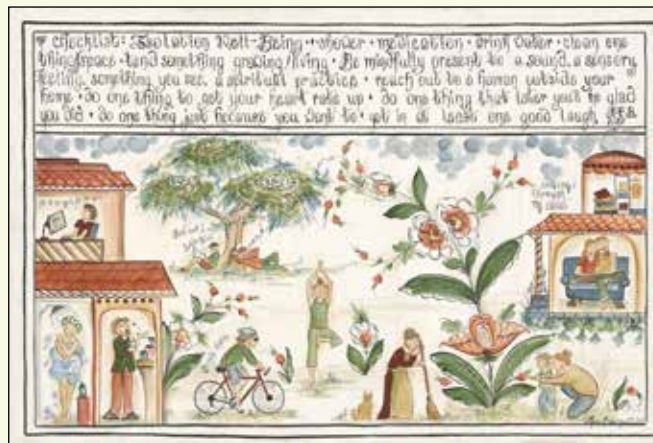 checklist: Isolation Well-Being • shower • medication • drink water • clean one
thing/space • tend something growing/living • Be mindfully present to a sound, a sensory
feeling, something you see, a spiritual practice • reach out to a human outside your
home • do one thing to get your heart rate up • do one thing that later you'll be glad
you did • do one thing just because you want to • get in at least one good laugh